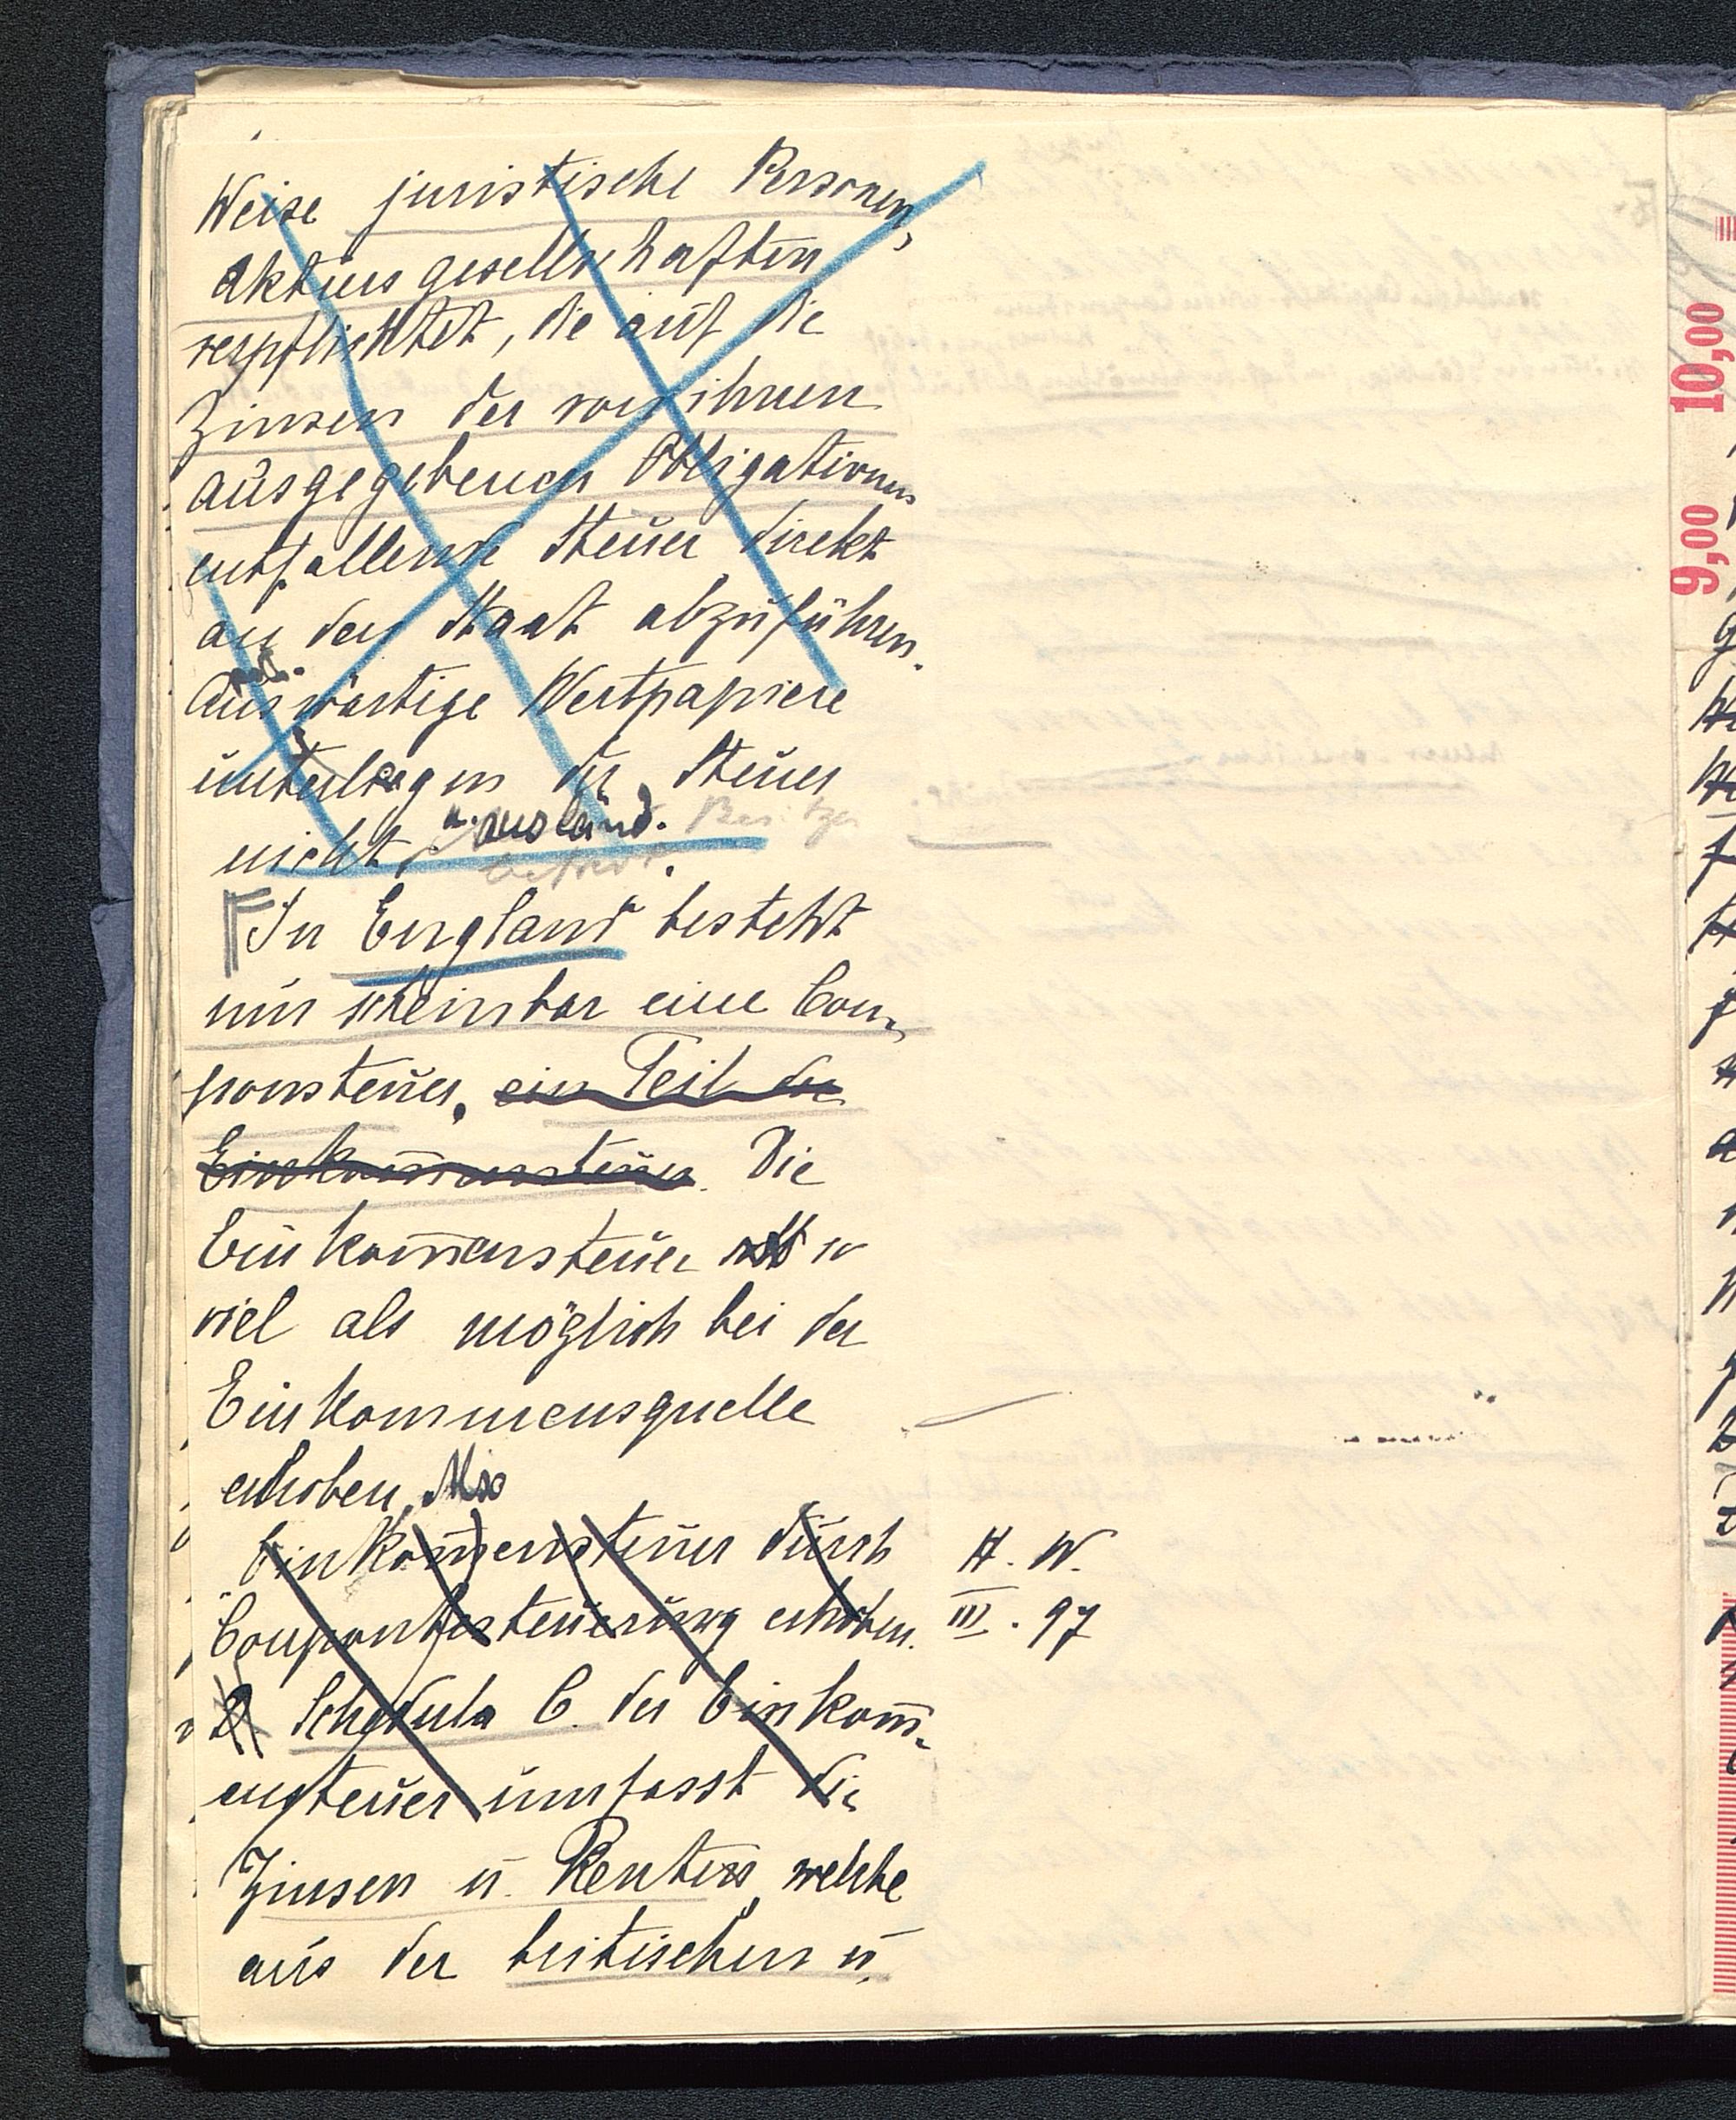 Weise juristische Personen,
Aktiengesellschaften
verpflichtet, die auf die
Zinsen der von ihnen
ausgegebenen Obligationen
entfallende Steuer direkt
an den Staat abzuführen.
Auswärtige Wertpapiere
unterliegen der Steuer
nicht, u. ausländ. Besitzer
befreit.
In England besteht
nur scheinbar eine Cou-
ponsteuer. ein Teil der
Einkom̅ensteuer. Die
Einkom̅ensteuer so
viel als möglich bei der
Einkommensquelle
erhoben. Also
Einkom̅ensteuer durch
Couponbesteuerung erhoben.
H. W.
III. 97
Schedula C. der Einkom̅-
ensteuer umfasst die
Zinsen u. Renten, welche
aus der britischen u.
10,00
9,00